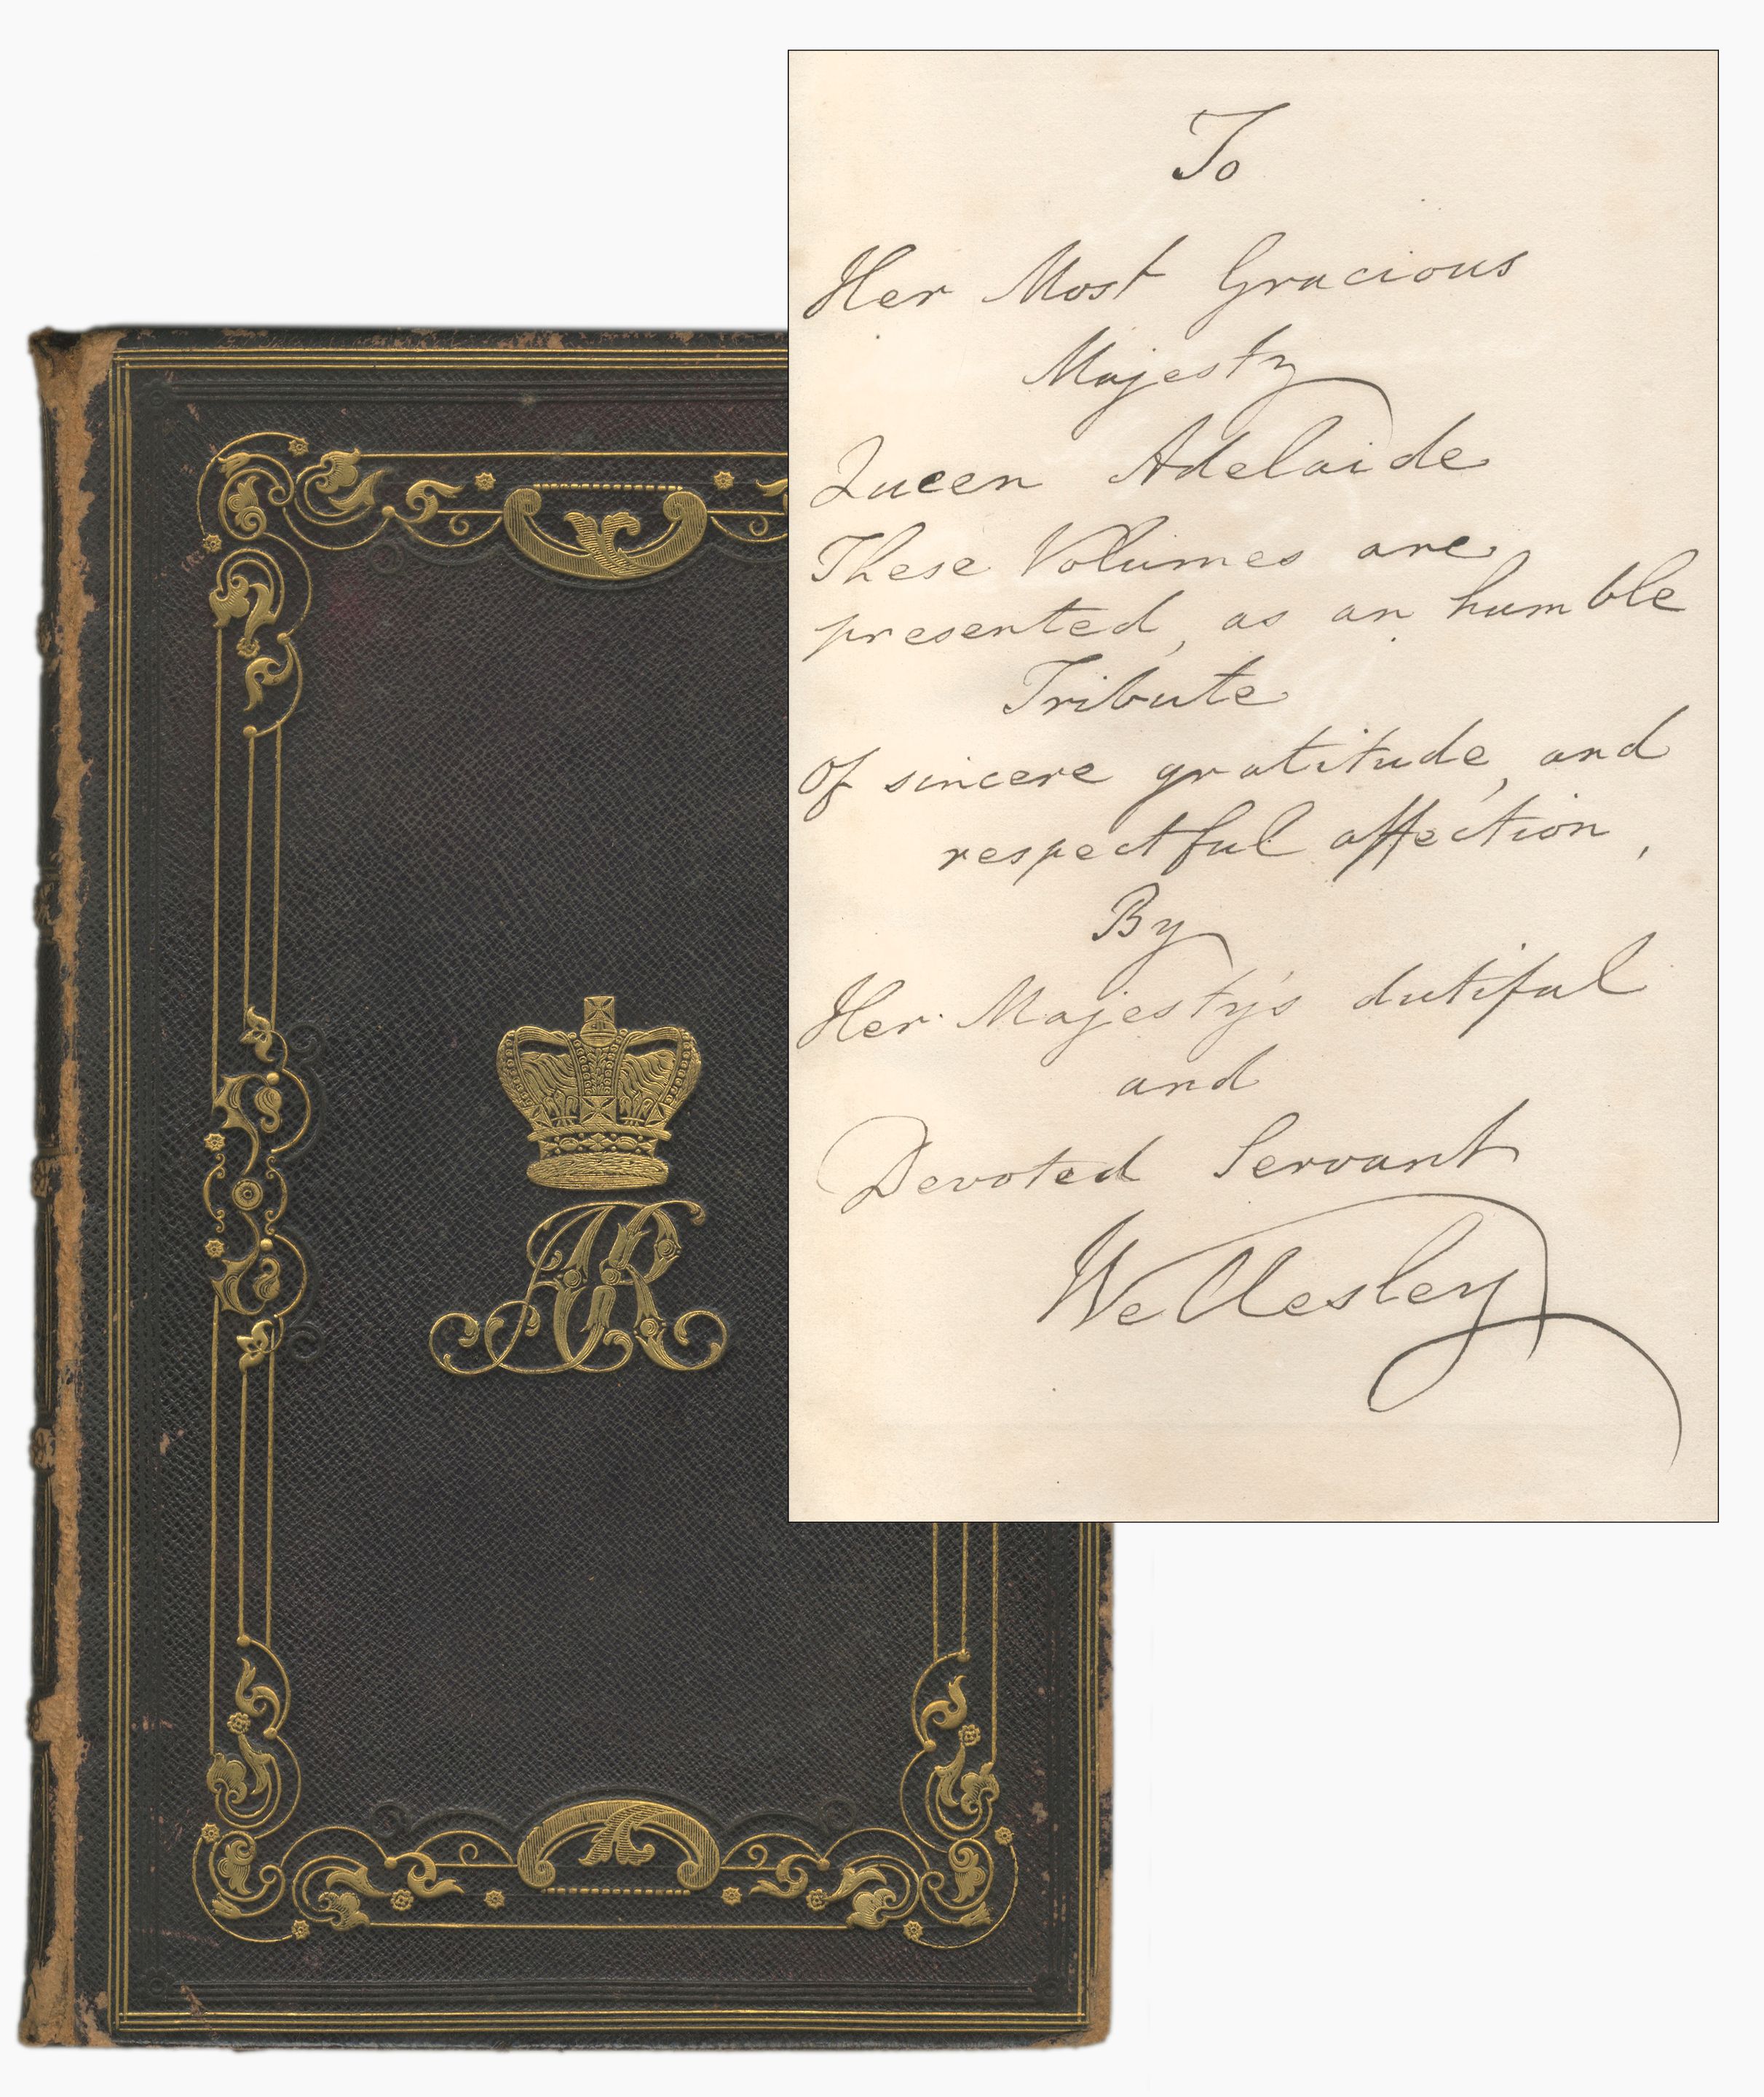 To
Her Most Gracious
Majesty
Queen Adelaide
These Volumes are
presented, as an humble
Tribute
Of sincere gratitude, and
respectful affection,
By
Her Majesty's dutiful
and
Devoted Servant
Wellesley
AR